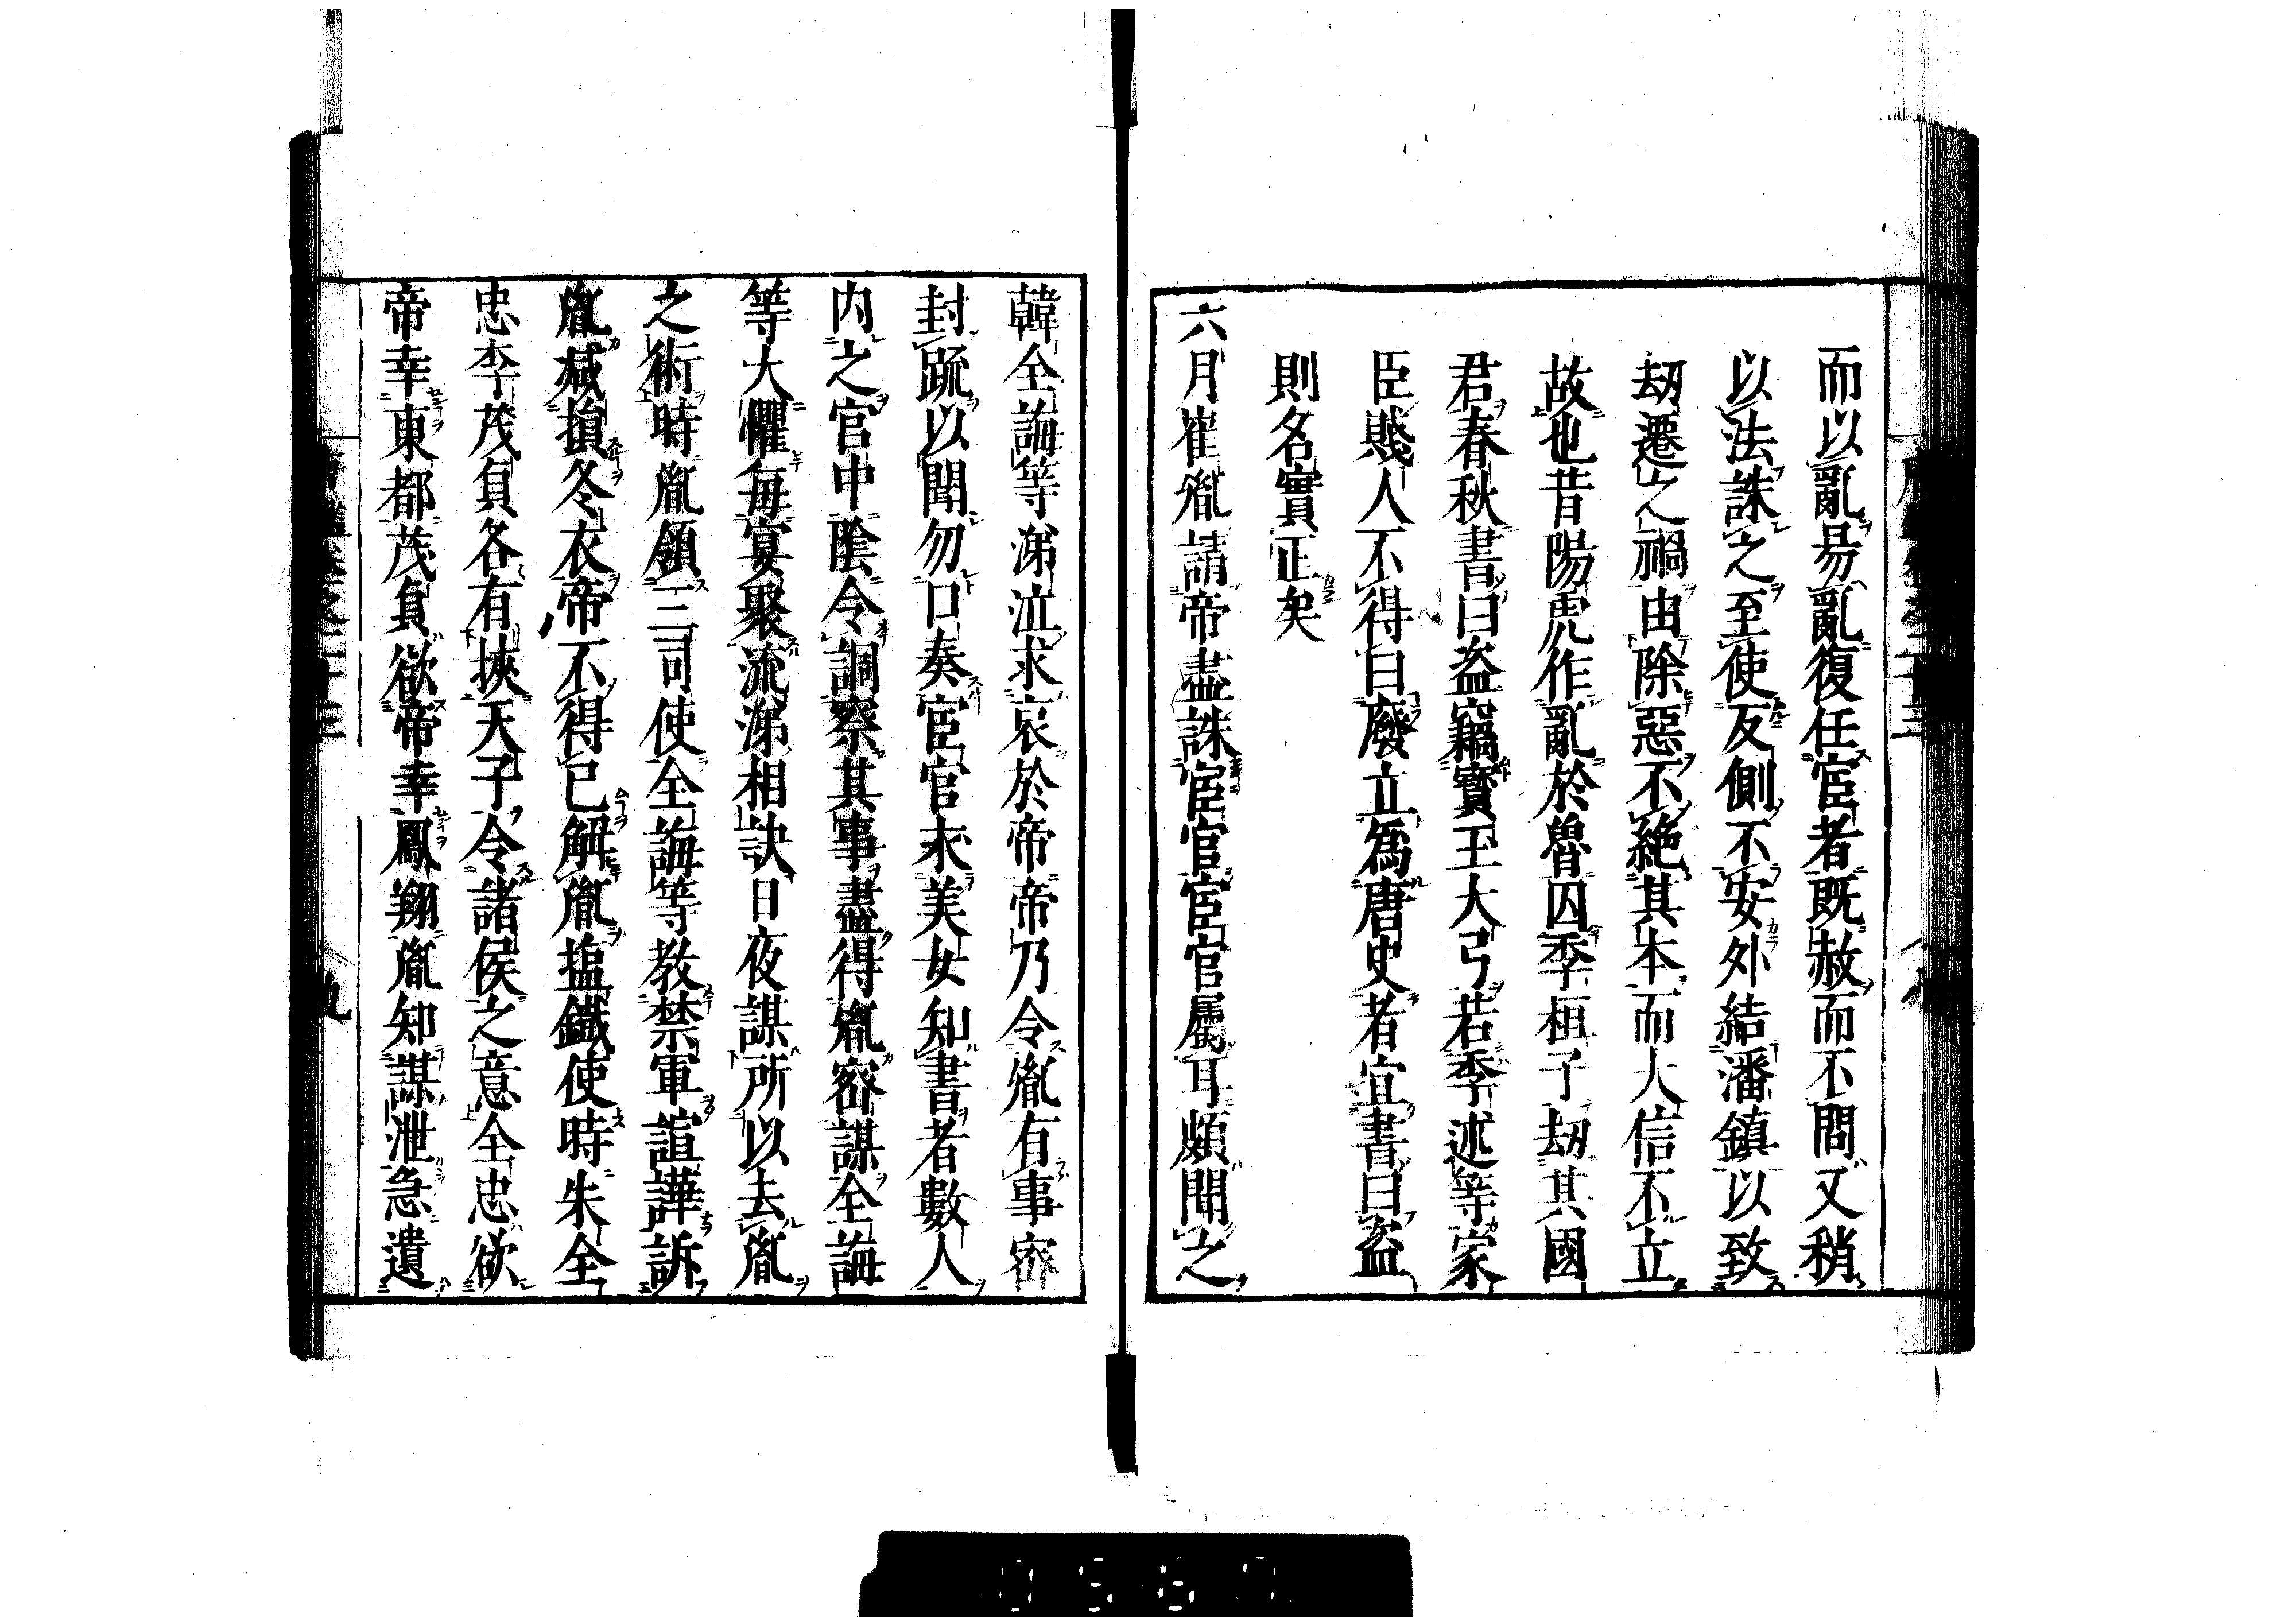 而以亂易亂復任宦者既赦而不問又稍
以法誅之至使反側不安外結潘鎮以致
劫遷之禍由除惡不絶其本而大信不立
故也昔陽虎作亂於魯囚季桓子劫其國
君春秋書曰盗竊寶玉大弓若季述等家
臣賤人不得曰廢立爲唐史者宜書曰盗
則名實正矣
六月崔胤請帝盡誅宦官宦官屬耳頗聞之
韓全誨等涕泣求哀於帝帝乃令胤有事密
封疏以聞勿口奏宦官求美女知書者數人
内之宫中陰令詗察其事盡得胤密謀全誨
等大懼毎宴聚流涕相訣日夜謀所以去胤
之術時胤領三司使全誨等教禁軍諠譁訴
胤減損冬衣帝不得已解胤塩鐵使時朱全
忠李茂貞各有挾天子令諸侯之意全忠欲
帝幸東都茂貞欲帝幸鳳翔胤知謀泄急遺
九